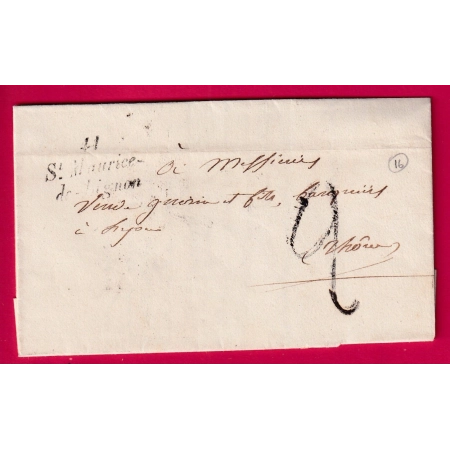 41
St Maurice-
de-Lignon
à Messieurs
Veuve guerin et fils, banquiers
à Lyon
Rhône
2
16